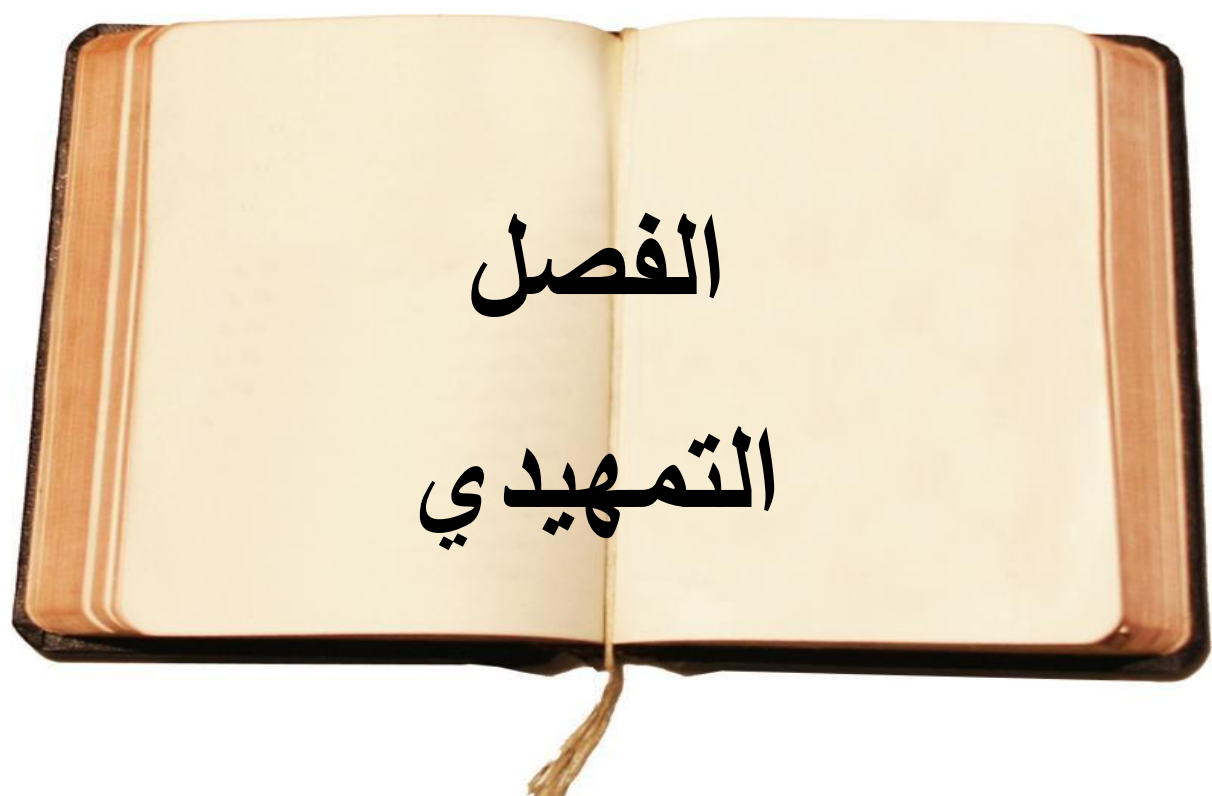 الفصل
التمهيدي